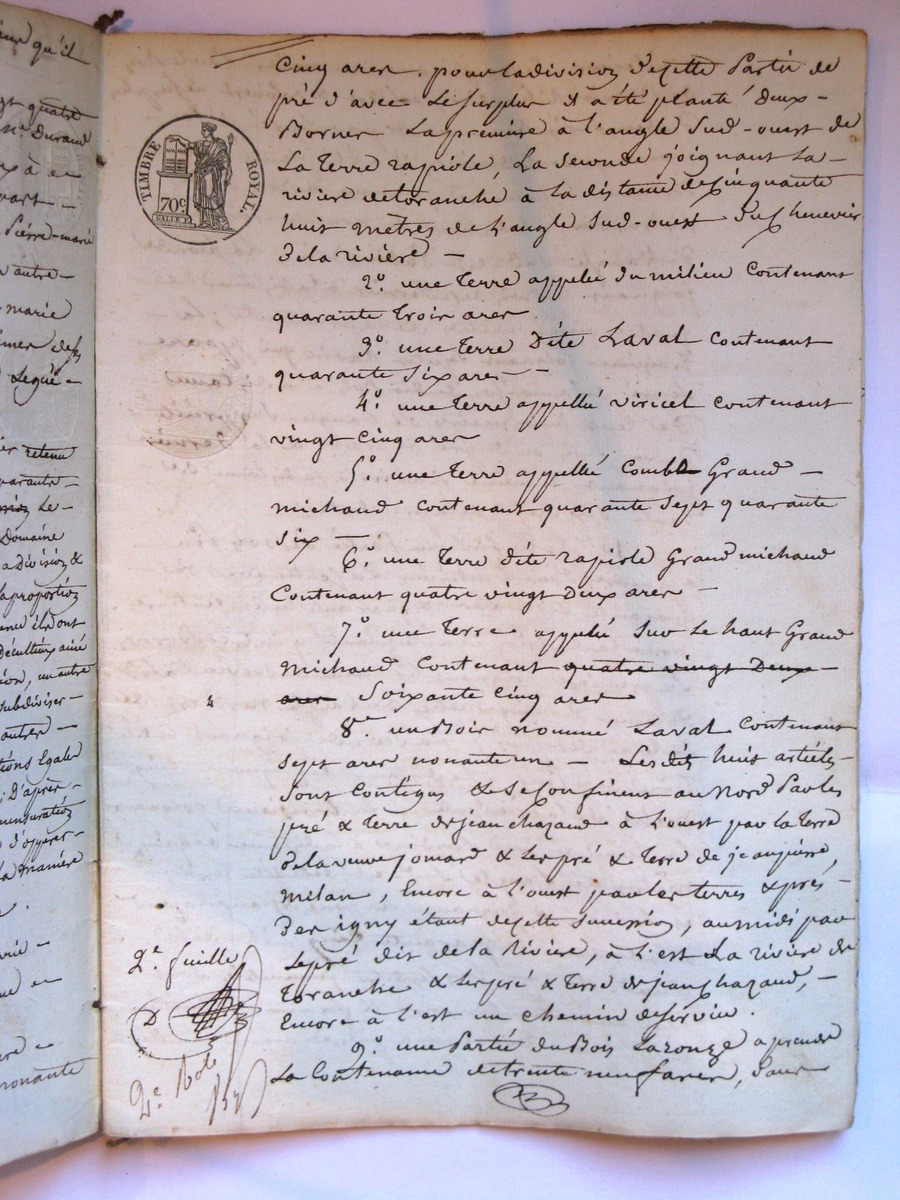 ine qu'il
gt quatre
Me. Durand
x à en
part -
Pierre-marie
n autre -
marie
Legué -
retenu
parante -
Le -
Domaine
a Division &
la proportion
ils ont
ion, un autre
subdiviser -
autres -
tions Egales
; D'après -
mensuration
d'opperer -
la maniere
me en
nonante
TIMBRE ROYAL.
70c
Cinq ares. pour la division de cette Partie de
pré d'avec Le surplus il a été planté deux -
Bornes La premiere à l'angle Sud-ouest de
La Terre rapiole, La Seconde joignant La -
riviere de toranche à la distance de Cinquante
huit metres de l'angle Sud-ouest du Chenevier
De la rivière -
2º. une Terre appellée du milieu Contenant
quarante Trois ares.
3º. une Terre Dite Laval Contenant
quarante Six ares -
4º. une Terre appellée viricel Contenant
vingt Cinq ares
5º. une Terre appellée Combe Grand -
michaud Contenant quarante Sept quarante
Six -
6º. une Terre dite rapiole Grand michaud
Contenant quatre vingt Deux ares -
7º. une Terre appellée Sur Le haut Grand
Michaud Contenant quatre vingt Deux -
ares Soixante Cinq ares
8º. un Bois nommé Laval Contenant
Sept ares nonante un - Les dits huit articles
Sont Contigus & Se Confinent au Nord Par les
pré & Terre de jean chazaud à L'ouest par la Terre
De la veuve jomard & Les pré & Terre de jean pierre
Milan, Encore à l'ouest par les terres & prés -
Perigny étant de cette Succession, au midi par
Le pré dit de la Rivière, à l'est La rivière de
Toranche & Les pré & Terre de jean Chazaud, -
Encore à l'est un Chemin de Service.
9º. une Partie du Bois Laronze a prendre
La Contenance de trente neuf ares, Dans
2e. feuille
2e. Rôle